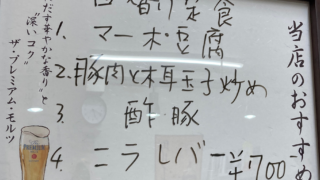 当店のおすすめ
定食
1. マーボ豆腐
2. 豚肉と木耳玉子炒め
3. 酢豚
4. ニラレバー
¥700
華やかな香りと
"深いコク"
ザ・プレミアム・モルツ